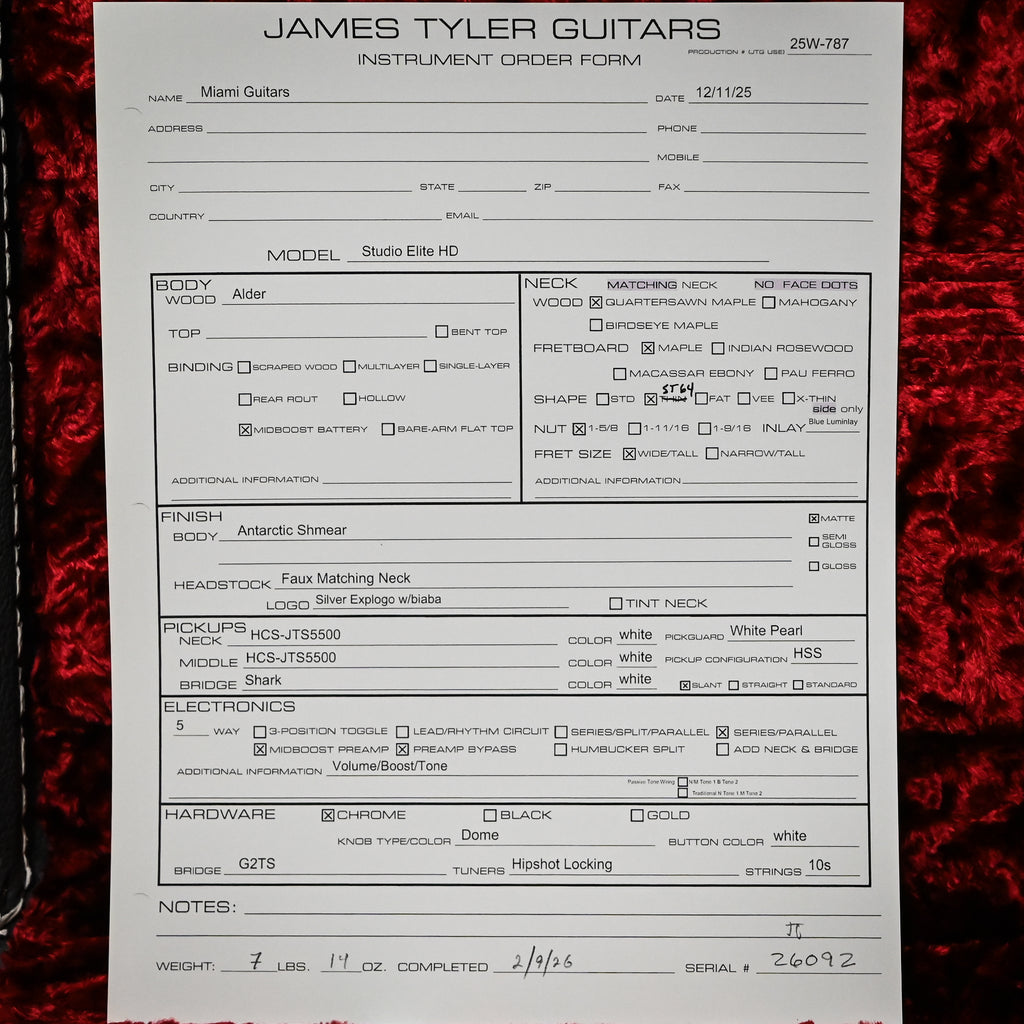 JAMES TYLER GUITARS
INSTRUMENT ORDER FORM
PRODUCTION # (JTG USE) 25W-787
NAME Miami Guitars DATE 12/11/25
ADDRESS PHONE
MOBILE
CITY STATE ZIP FAX
COUNTRY EMAIL
MODEL Studio Elite HD
BODY
WOOD Alder
TOP BENT TOP
BINDING SCRAPED WOOD MULTILAYER SINGLE-LAYER
REAR ROUT HOLLOW
MIDBOOST BATTERY BARE-ARM FLAT TOP
ADDITIONAL INFORMATION
NECK MATCHING NECK NO FACE DOTS
WOOD QUARTERSAWN MAPLE MAHOGANY
BIRDSEYE MAPLE
FRETBOARD MAPLE INDIAN ROSEWOOD
MACASSAR EBONY PAU FERRO
SHAPE STD ST64 FAT VEE X-THIN
side only
NUT 1-5/8 1-11/16 1-9/16 INLAY Blue Luminlay
FRET SIZE WIDE/TALL NARROW/TALL
ADDITIONAL INFORMATION
FINISH
BODY Antarctic Shmear
MATTE
SEMI GLOSS
GLOSS
HEADSTOCK Faux Matching Neck
LOGO Silver Explogo w/biaba TINT NECK
PICKUPS
NECK HCS-JTS5500 COLOR white PICKGUARD White Pearl
MIDDLE HCS-JTS5500 COLOR white PICKUP CONFIGURATION HSS
BRIDGE Shark COLOR white SLANT STRAIGHT STANDARD
ELECTRONICS
5 WAY 3-POSITION TOGGLE LEAD/RHYTHM CIRCUIT SERIES/SPLIT/PARALLEL SERIES/PARALLEL
MIDBOOST PREAMP PREAMP BYPASS HUMBUCKER SPLIT ADD NECK & BRIDGE
ADDITIONAL INFORMATION Volume/Boost/Tone
Passive Tone Wiring N/M Tone 1 B Tone 2
Traditional N Tone 1 M Tone 2
HARDWARE CHROME BLACK GOLD
KNOB TYPE/COLOR Dome BUTTON COLOR white
BRIDGE G2TS TUNERS Hipshot Locking STRINGS 10s
NOTES:
WEIGHT: 7 LBS. 14 OZ. COMPLETED 2/9/26 SERIAL # 26092